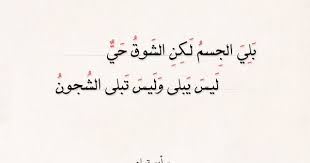 بَلِيَ الجِسمُ لَكِنِ الشَوقُ حَيٌّ
لَيسَ يَبلى وَلَيسَ تَبلى الشُجونُ